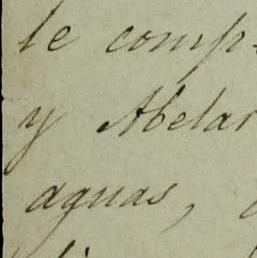 le comp-
y Abelar
aguas,